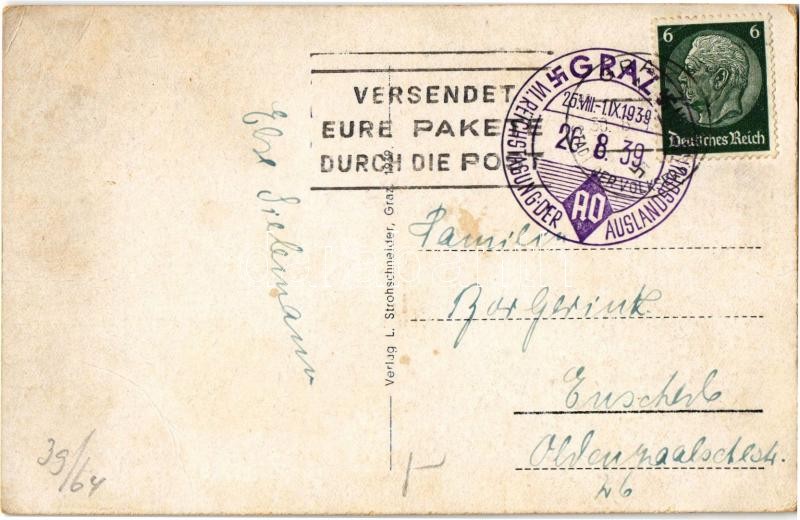 VERSENDET
EURE PAKETE
DURCH DIE POST
GRAZ
26.VIII.-1.IX.1939
26.8.39
VI. REICHSTAGUNG DER AUSLANDSDEUTSCHEN
AO
6 6
Deutsches Reich
Familie
Borgerink
Enschede
Oldenzaalschestr.
26
Else
Verlag L. Strohschneider, Graz. 1939
39/64